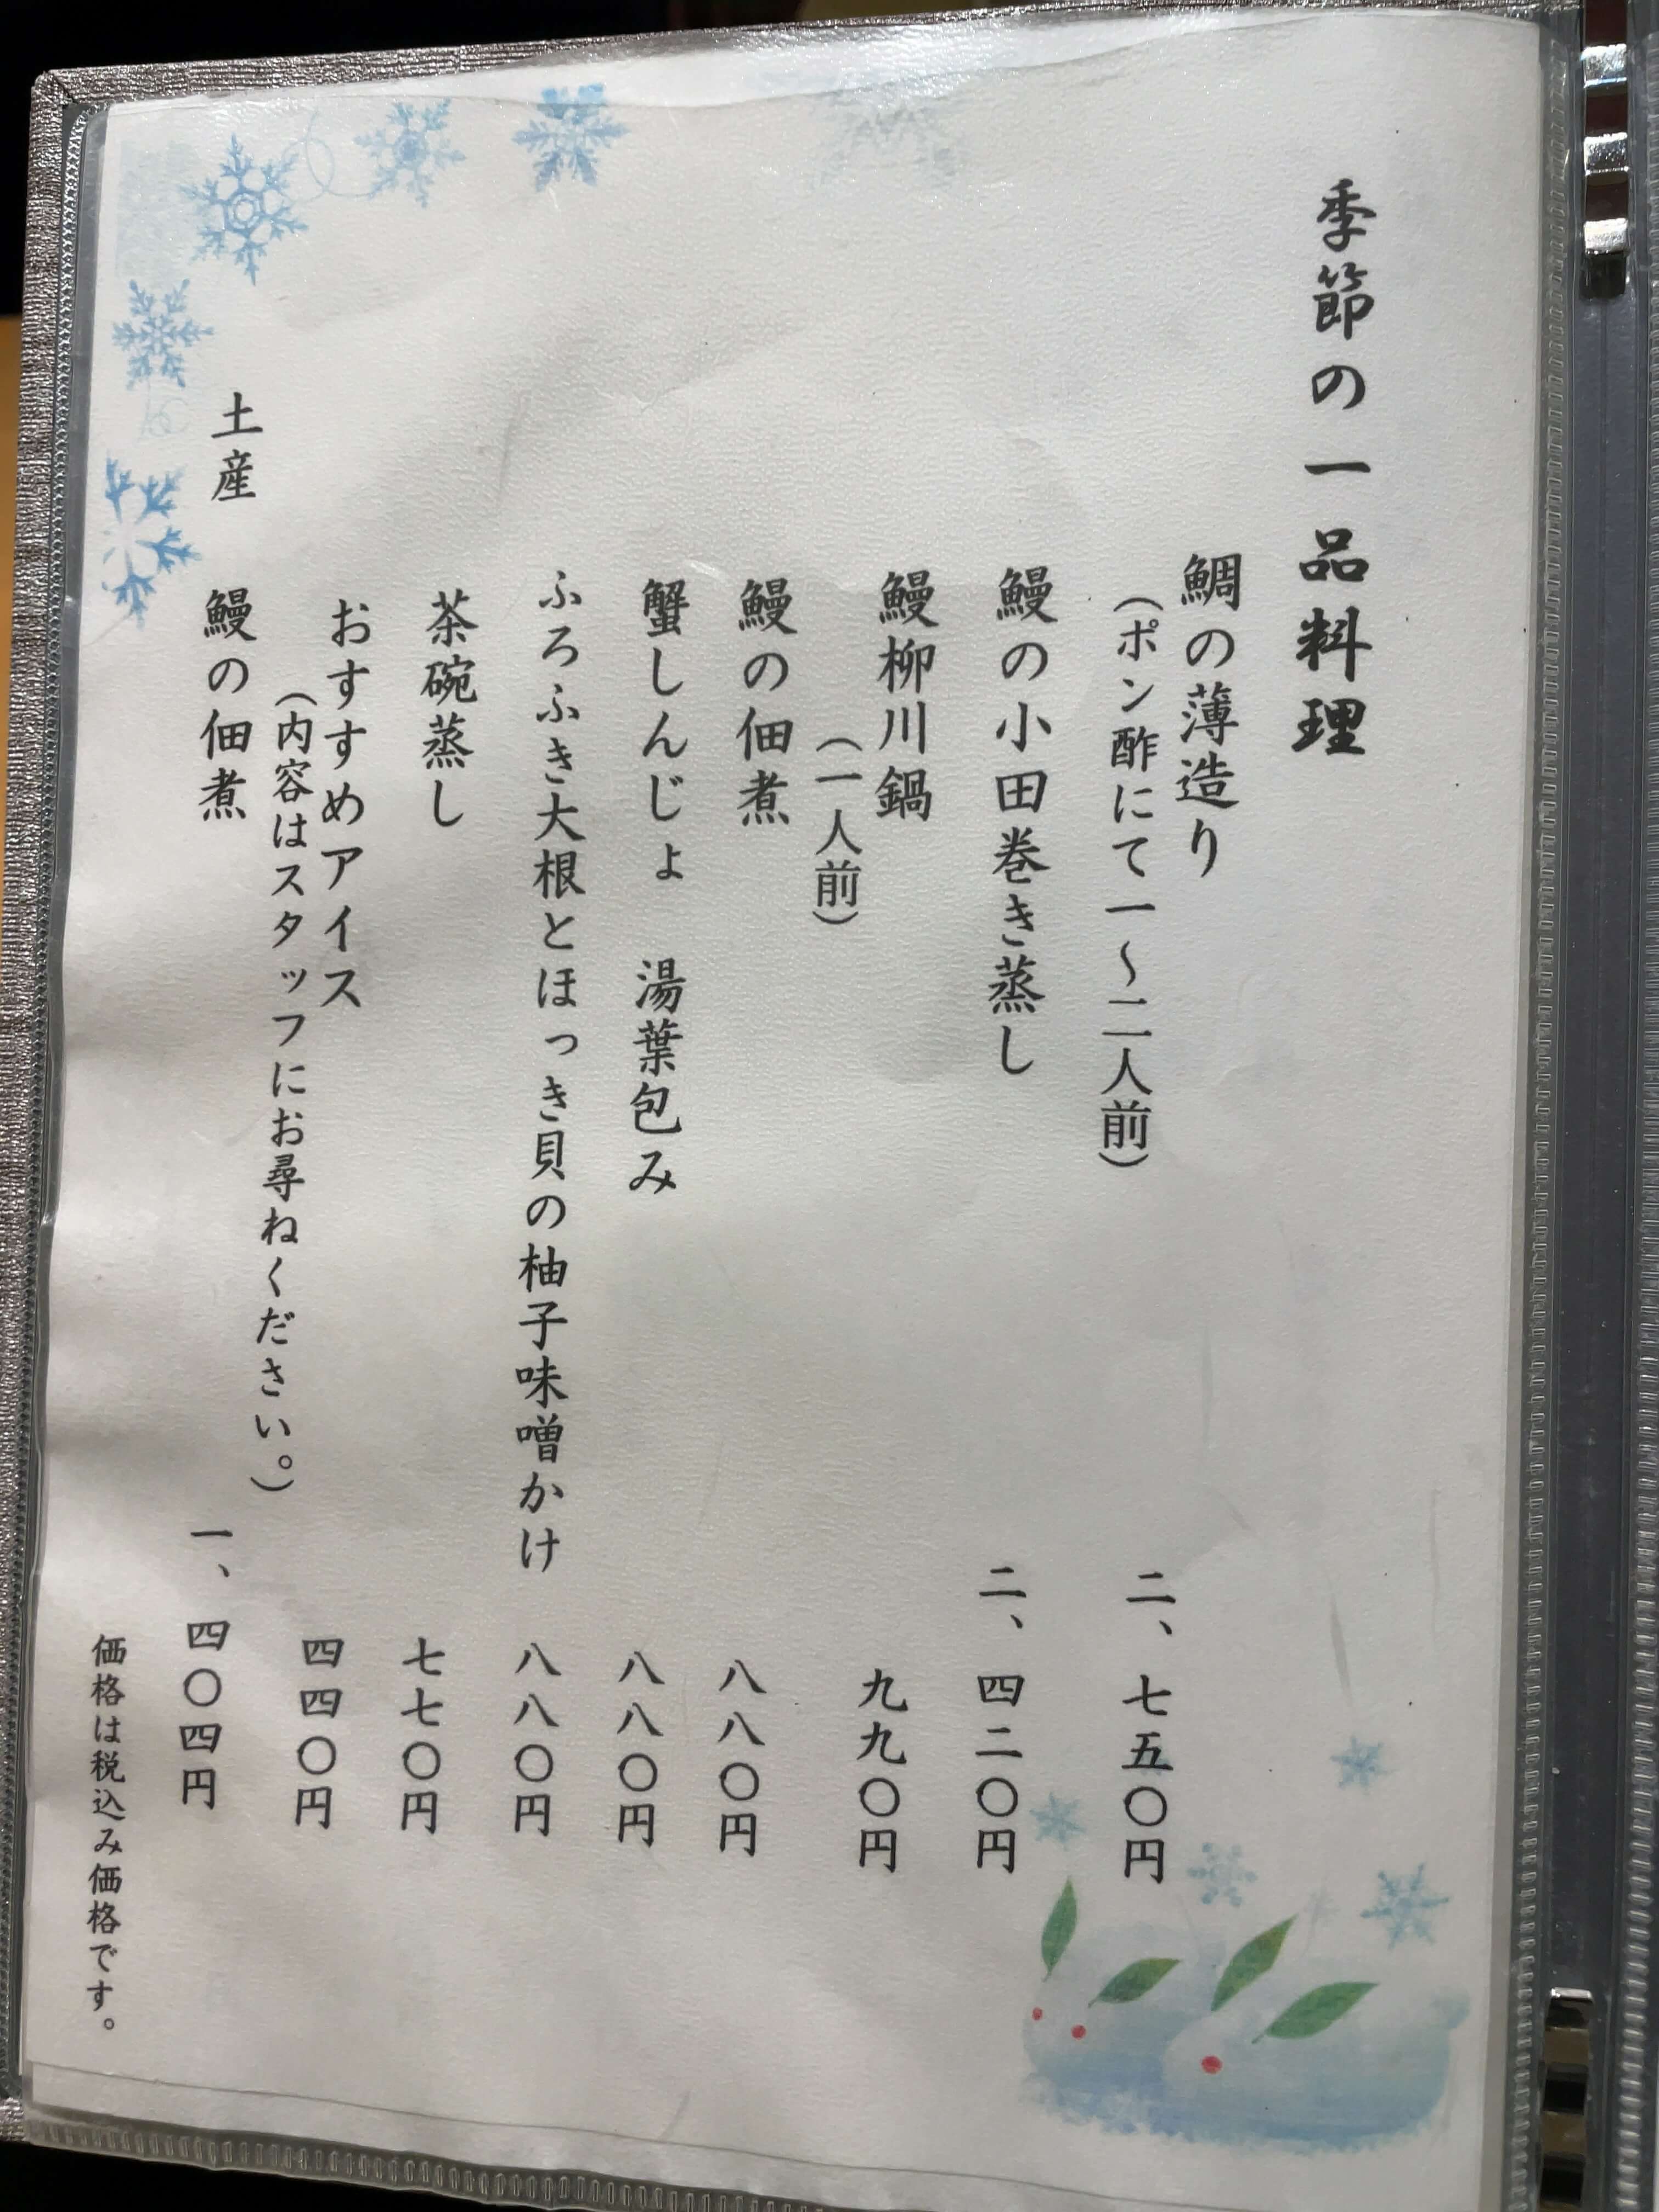 季節の一品料理
鯛の薄造り
（ポン酢にて一〜二人前） 二、七五〇円
鰻の小田巻き蒸し 二、四二〇円
鰻柳川鍋
（一人前） 九九〇円
鰻の佃煮 八八〇円
蟹しんじょ 湯葉包み 八八〇円
ふろふき大根とほっき貝の柚子味噌かけ 八八〇円
茶碗蒸し 七七〇円
おすすめアイス 四四〇円
（内容はスタッフにお尋ねください。）
土産 鰻の佃煮 一、四〇四円
価格は税込み価格です。